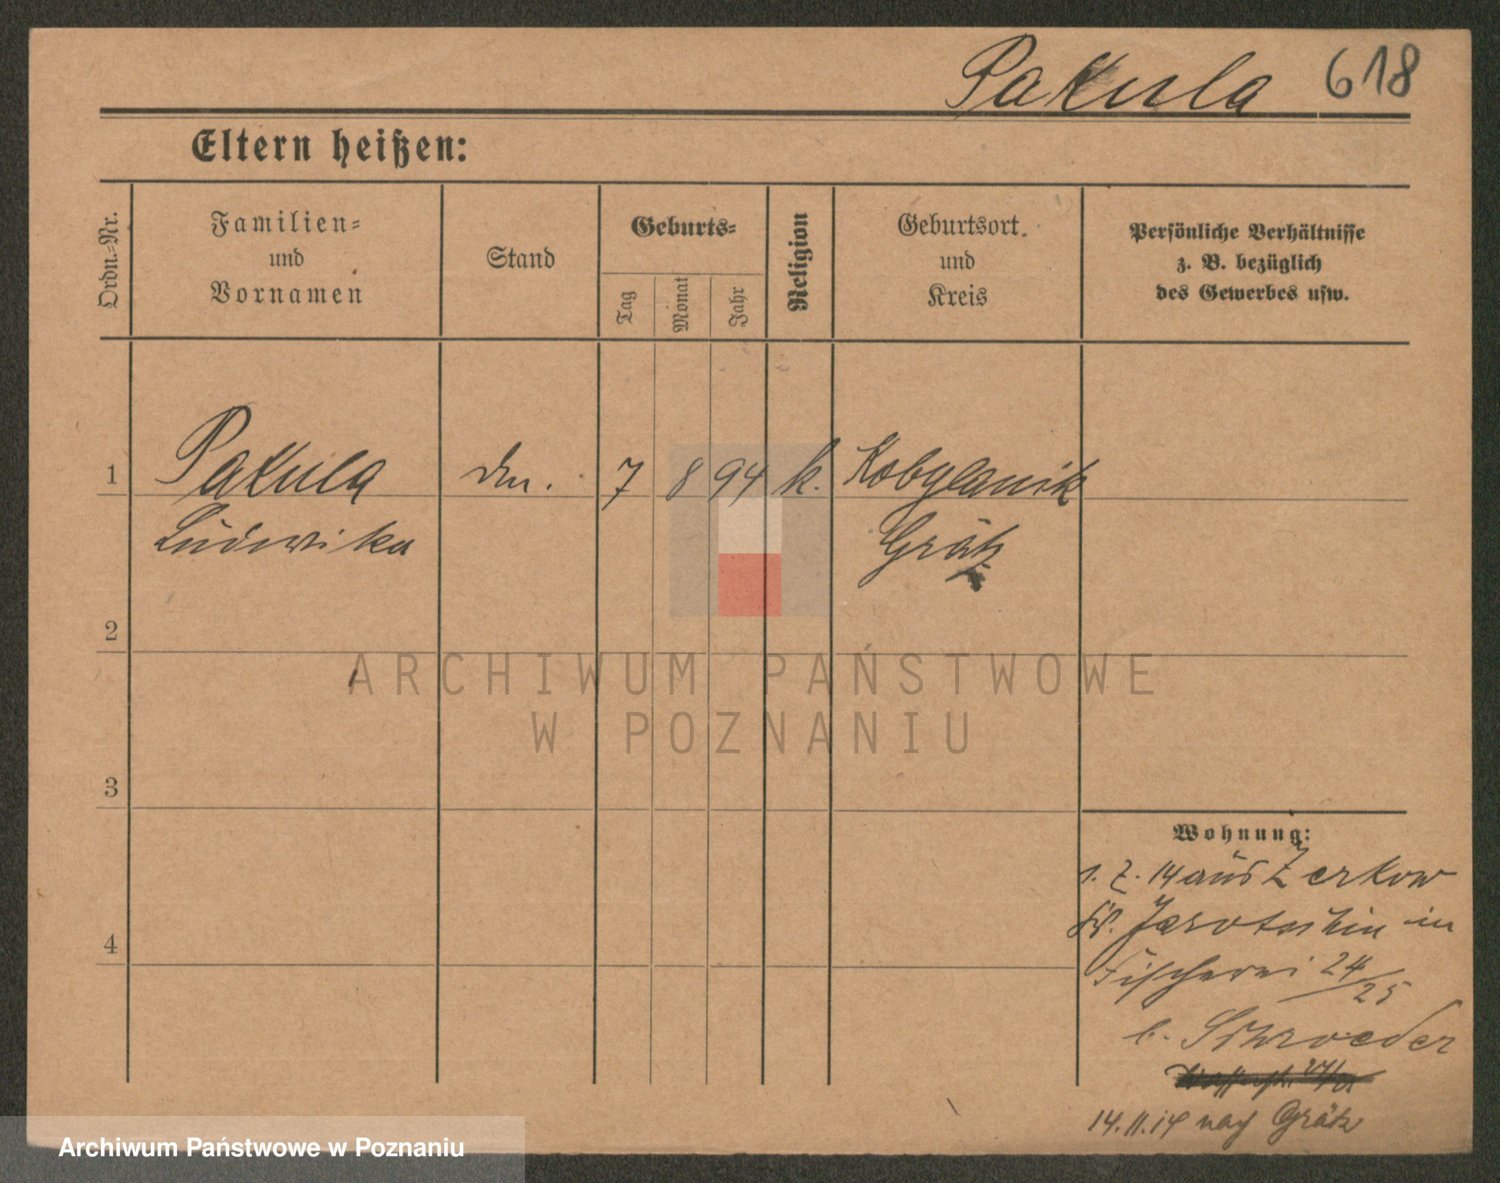 Pakula 618
Eltern heißen:
Ordn.-Nr.
Familien-
und
Vornamen
Stand
Geburts-
Tag
Monat
Jahr
Religion
Geburtsort
und
Kreis
Persönliche Verhältnisse
z. B. bezüglich
des Gewerbes usw.
1 Pakula 7 8 94 k. Kobylanik
Ludwika Grätz
2
3
4
Wohnung:
1. 7. 14 aus Zerkow
Jarotschin in
Fischerei 24/25
b. Schroeder
14.11.14 nach Grätz
ARCHIWUM PAŃSTWOWE
W POZNANIU
Archiwum Państwowe w Poznaniu